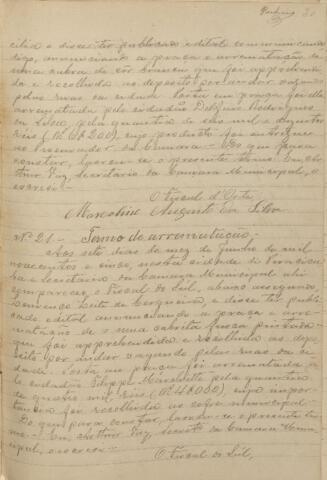 30
cilio e disse ter publicado edital com um cam
tigo, annunciando a praça e arrematação de
uma cabra de côr branca que foi apprehendi
da e recolhida no deposito por andar vagando
pelas ruas da cidade. Posta em praça foi ella
arrematada pelo cidadão Rodrigues
da Silva pela quantia de seis mil e duzentos
reis (Rs. 6$200), cujo producto foi entregue
ao Procurador da Camara. Do que para
constar, lavrou-se o presente termo. Eu, Ar
thur Vaz, Secretario da Camara Municipal, o
escrevi.
O Fiscal d'Oeste
Marcolino Augusto da Silva
Nº 21 - Termo de arrematação.
Aos sete dias do mez de Junho de mil
novecentos e cinco, nesta cidade de Piracica
ba e Secretaria da Camara Municipal ahi
compareceu o Fiscal do Sul, abaixo assignado,
Leite de Cerqueira, e disse ter publi
cado edital annunciando a praça e arre
matação de uma cabrita fusca pintada
que foi apprehendida e recolhida ao depo
sito por andar vagando pelas ruas da ci
dade. Posta em praça foi arrematada a
o cidadão Felippe pela quantia
de quatro mil reis (Rs. 4$000) cuja impor
tancia foi recolhida ao cofre municipal.
Do que para constar, lavrou-se o presente ter
mo. Eu, Arthur Vaz, Secretº da Camara Muni
cipal, o escrevi.
O Fiscal do Sul,